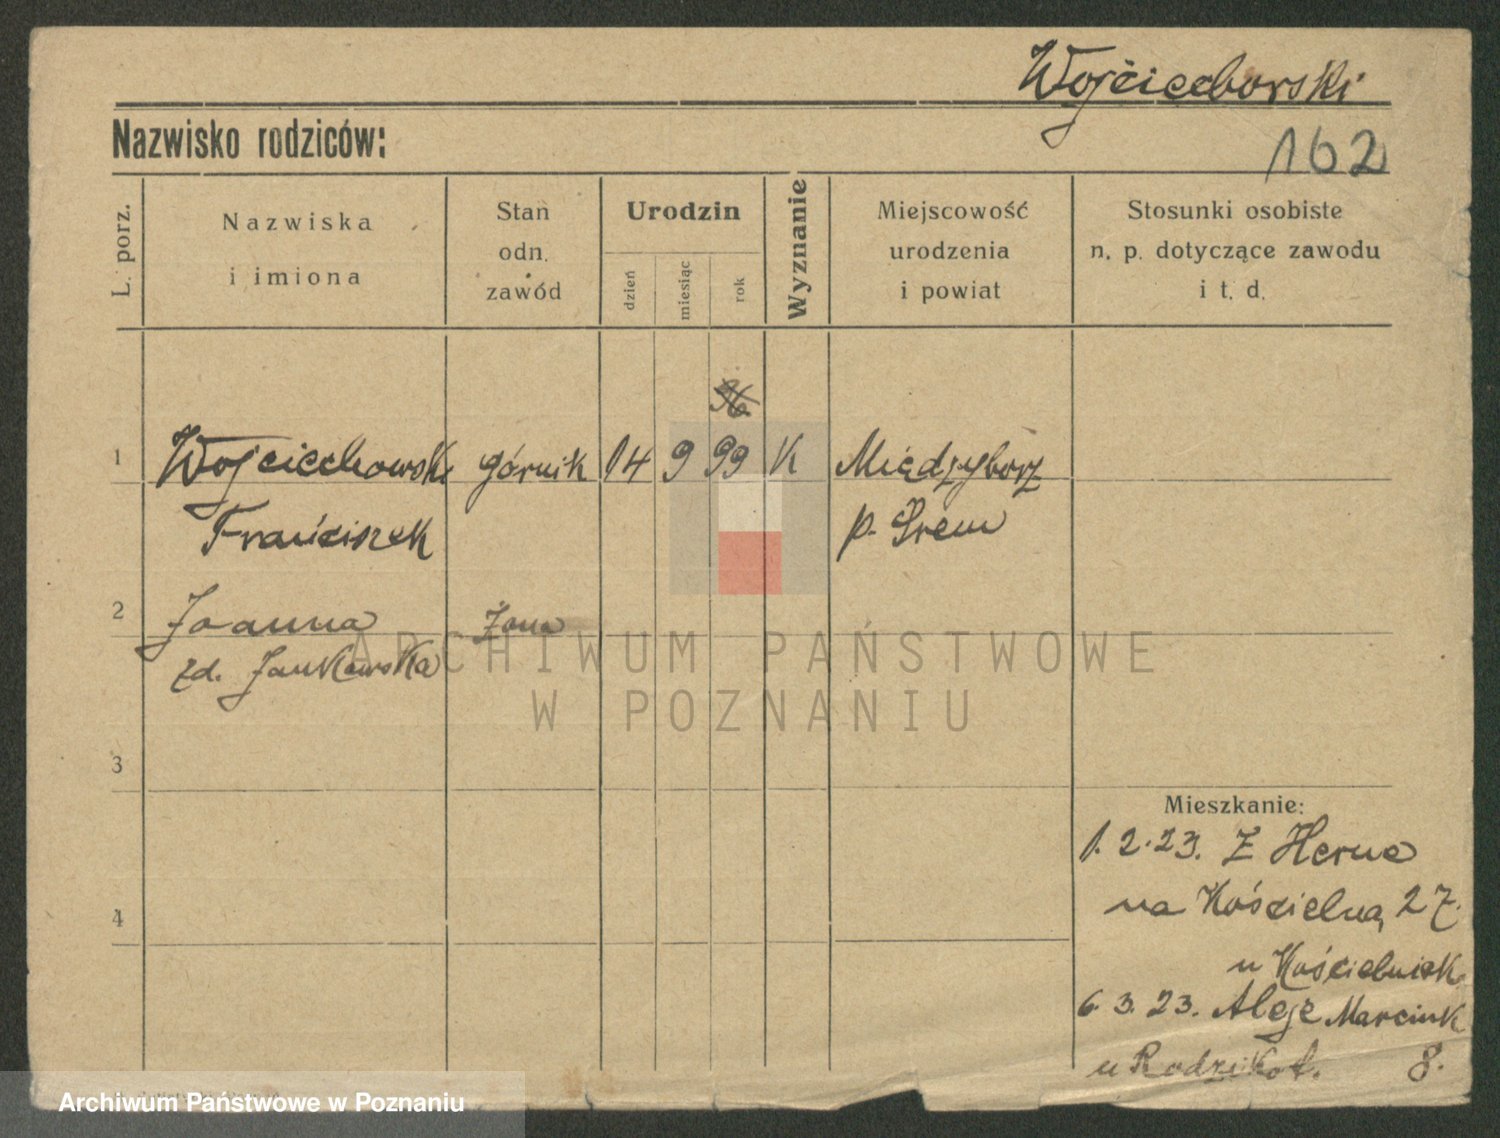 Wojciechowski
Nazwisko rodziców:
162
L. porz.
Nazwiska
i imiona
Stan
odn.
zawód
Urodzin
dzień
miesiąc
rok
Wyznanie
Miejscowość
urodzenia
i powiat
Stosunki osobiste
n. p. dotyczące zawodu
i t. d.
96.
1 Wojciechowski górnik 14 9 99 K Międzyborz
Franciszek p. Śrem
2 Joanna żona
zd. Jankowska
3
4
Mieszkanie:
1. 2. 23. Z Herne
na Kościelną 27.
u Kościelniak
6. 3. 23. Aleje Marcink
u 8.
ARCHIWUM PAŃSTWOWE
W POZNANIU
Archiwum Państwowe w Poznaniu